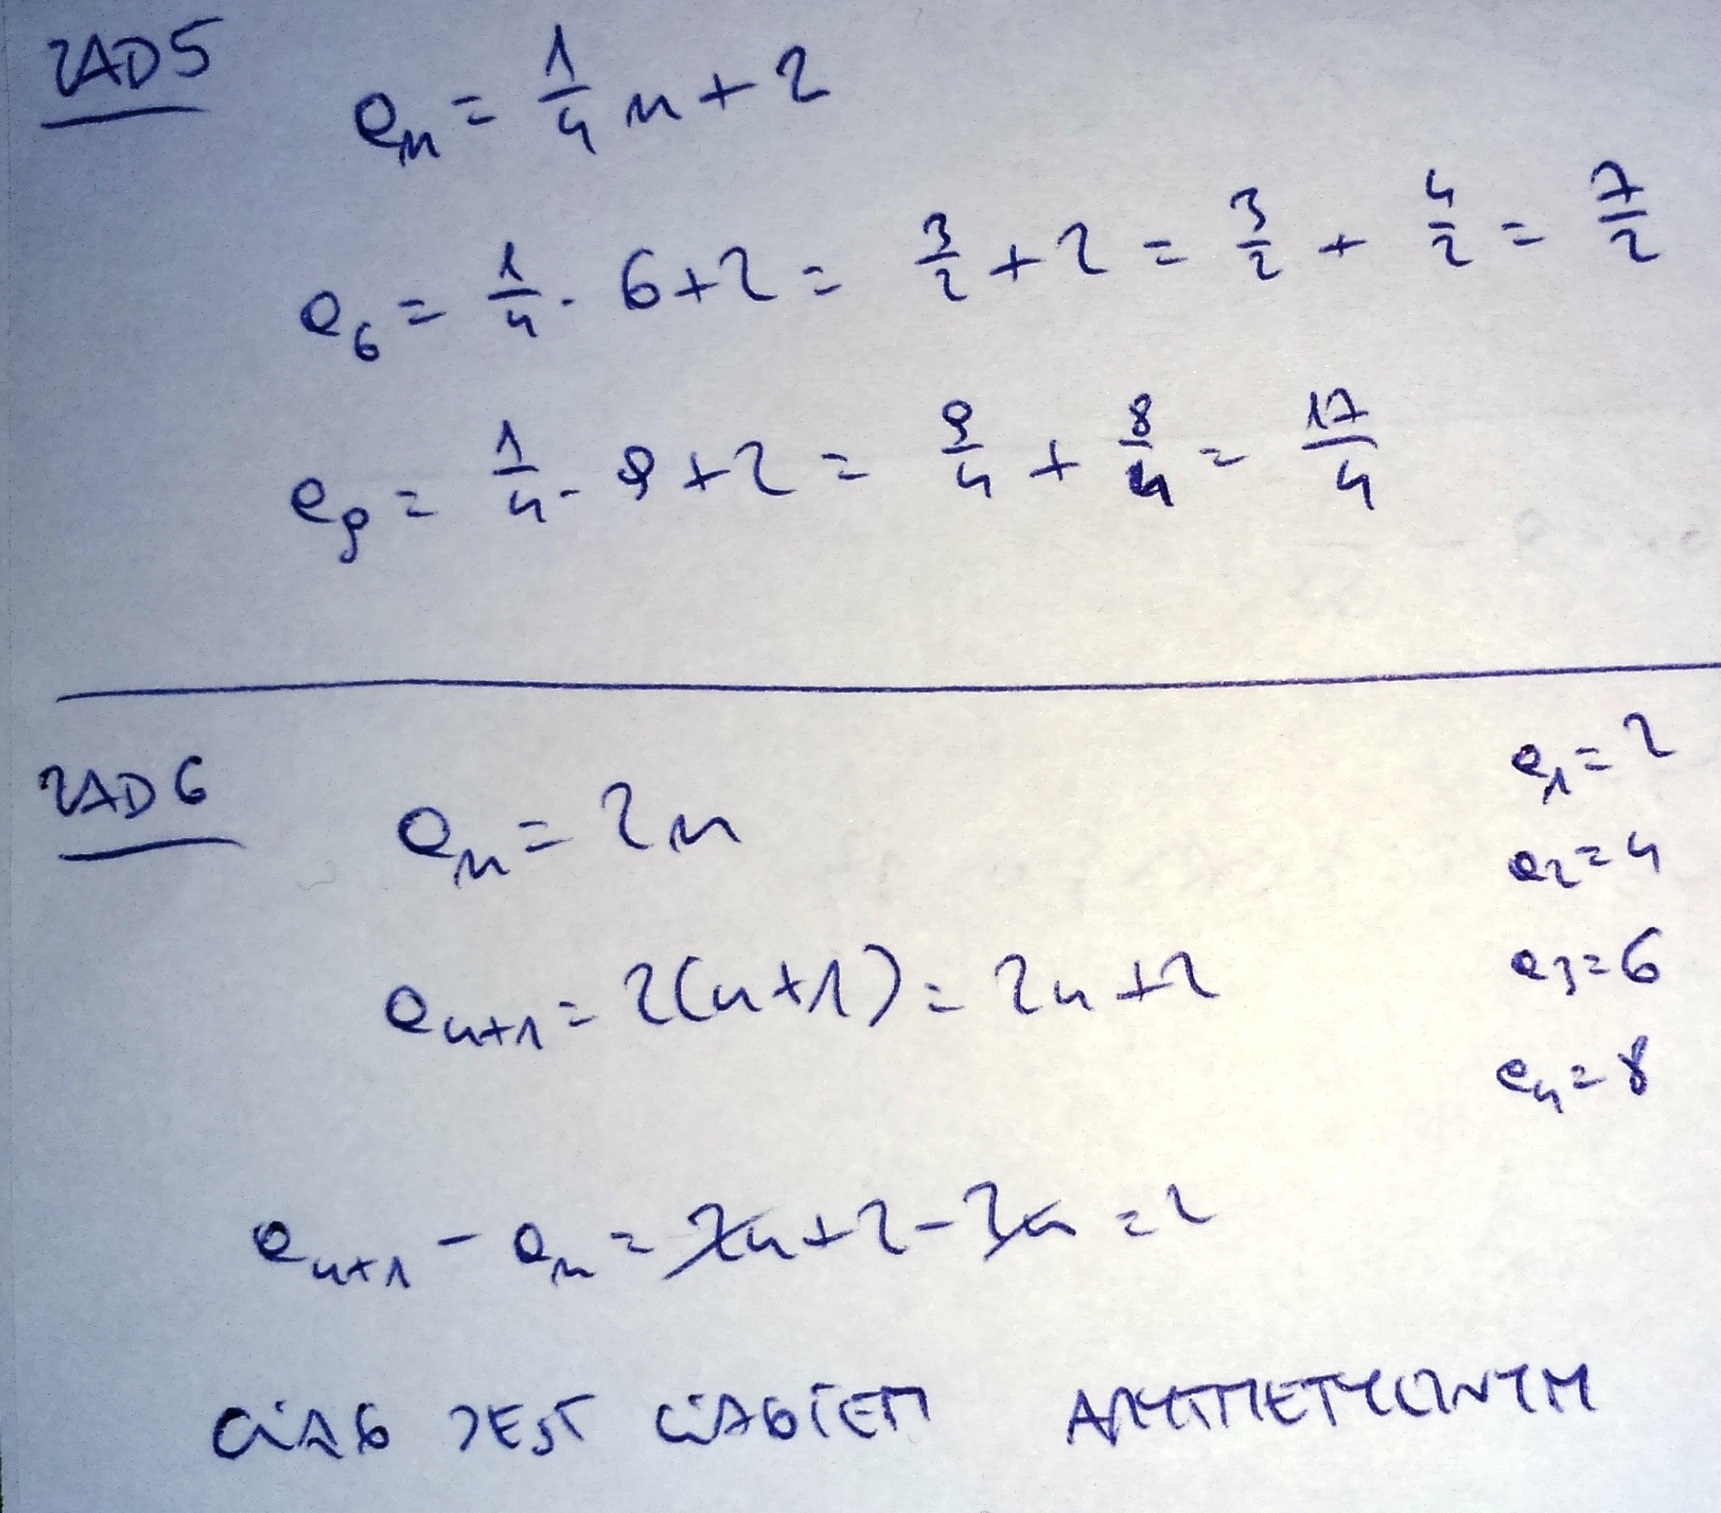 ZAD 5
aₙ = 1/4 n + 2
a₆ = 1/4 · 6 + 2 = 3/2 + 2 = 3/2 + 4/2 = 7/2
a₉ = 1/4 · 9 + 2 = 9/4 + 8/4 = 17/4
ZAD 6
aₙ = 2n
aₙ₊₁ = 2(n+1) = 2n + 2
aₙ₊₁ - aₙ = 2n + 2 - 2n = 2
a₁ = 2
a₂ = 4
a₃ = 6
a₄ = 8
CIĄG JEST CIĄGIEM ARYTMETYCZNYM